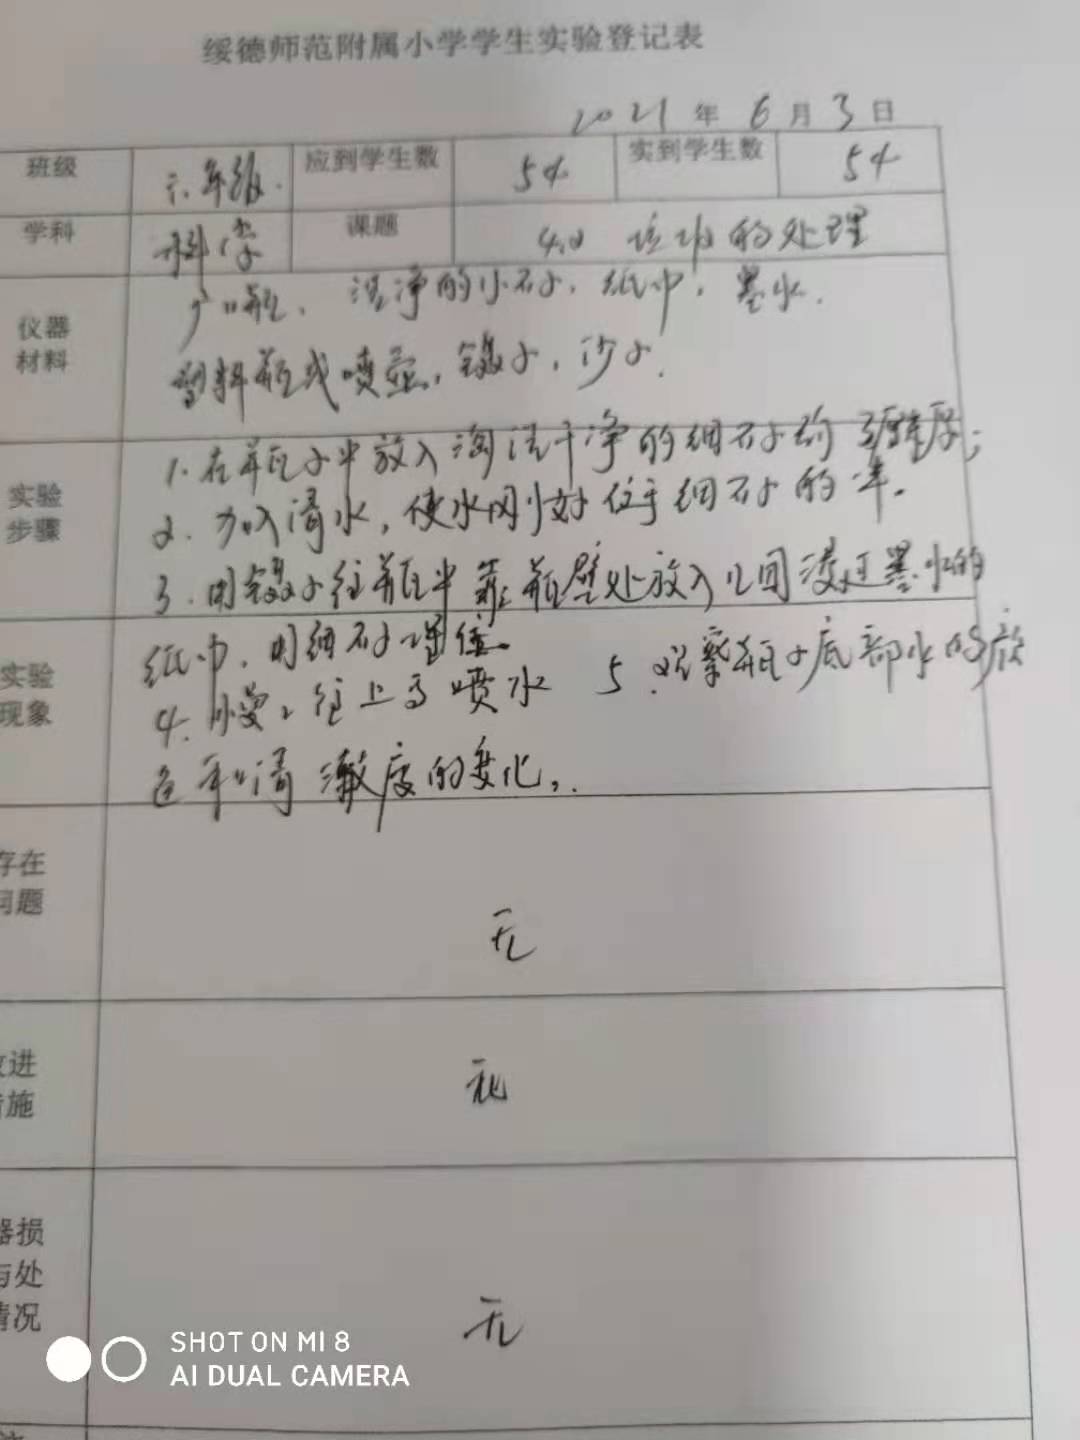 绥德师范附属小学学生实验登记表
2021年6月3日
班级 六年级 应到学生数 54 实到学生数 54
学科 科学 课题 4.2 垃圾的处理
仪器材料 广口瓶、洁净的小石子、纸巾、墨水.
塑料瓶或喷壶,镊子,沙子.
实验步骤 1.在瓶子中放入淘洗干净的细石子约 厚;
2.加入清水,使水刚好位于细石子的一半。
3.用镊子往瓶中靠瓶壁处放入几团浸过墨水的
实验现象 纸巾,用细石子埋住。
4.慢慢往上方喷水 5.观察瓶子底部水的颜
色和清澈度的变化。
存在问题 无
改进措施 无
器损 与处 情况 无
SHOT ON MI 8
AI DUAL CAMERA